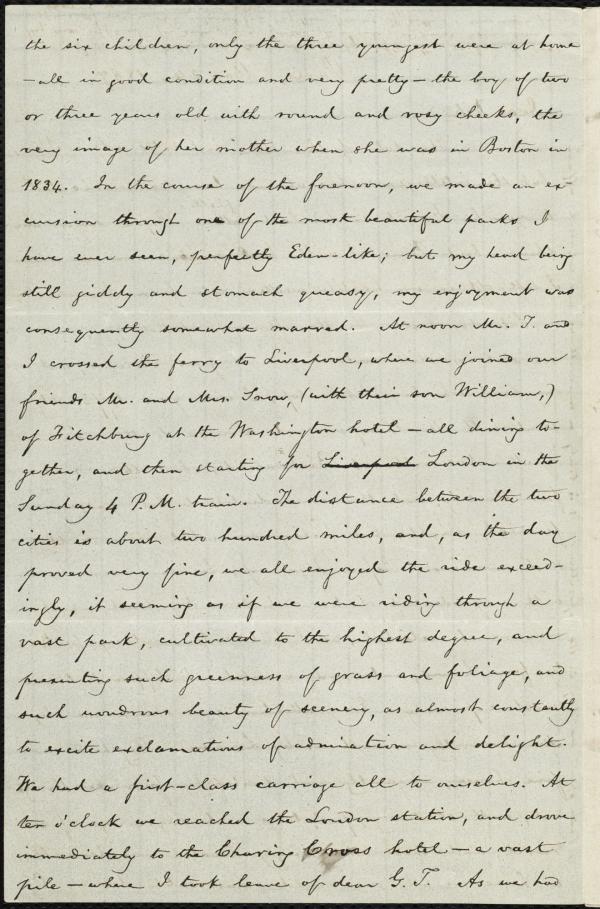 the six children, only the three youngest were at home
—all in good condition and very pretty—the boy of two
or three years old with round and rosy cheeks, the
very image of her mother when she was in Boston in
1834. In the course of the forenoon, we made an ex-
cursion through one of the most beautiful parks I
have ever seen, perfectly Eden-like; but my head being
still giddy and stomach queasy, my enjoyment was
consequently somewhat marred. At noon Mr. T. and
I crossed the ferry to Liverpool, where we joined our
friends Mr. and Mrs. Snow, (with their son William,)
of Fitchburg at the Washington hotel—all dining to-
gether, and then starting for Liverpool London in the
Sunday 4 P.M. train. The distance between the two
cities is about two hundred miles, and, as the day
proved very fine, we all enjoyed the ride exceed-
ingly, it seeming as if we were riding through a
vast park, cultivated to the highest degree, and
presenting such greenness of grass and foliage, and
such wondrous beauty of scenery, as almost constantly
to excite exclamations of admiration and delight.
We had a first-class carriage all to ourselves. At
ten o'clock we reached the London station, and drove
immediately to the Charing Cross hotel—a vast
pile—where I took leave of dear G. T. As we had